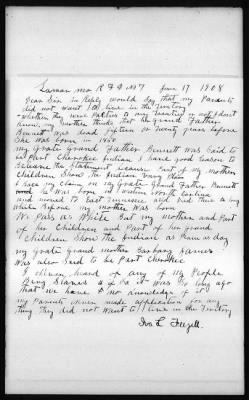 Lamar mo R F D No 7 Jan 17 1908
Dear Sir in Reply would Say that my Parents
did not want to live in the Territory
whether they were Parties to any treatys or not I dont
know, my mother thinks that her grand Father
Bennett was dead fifteen or twenty years before
She was born in 1850
my Grate Grand Father Bennett was Said to
be Part Cherokee Indian I have good reason to
Believe the Statement because Part of my mothers
Children Show the Indian very plain
I base my claim on my Grate Grand Father Bennett
and he was raised in Western North Carolina
and moved to East Tennessee and died there so long
before my mother was born
We Pass as White but my mother and Part
of her Children and Part of her grand
Children Show the Indian as Plain as day
my Grate Grand mother Barbary
was also Said to be Part Cherokee
I never heard of any of my People
Being Slaves if it was So long ago
that we have no knowledge of it
my Parents never made application for any
thing they did not want to live in the Territory
Ira L. Frizell